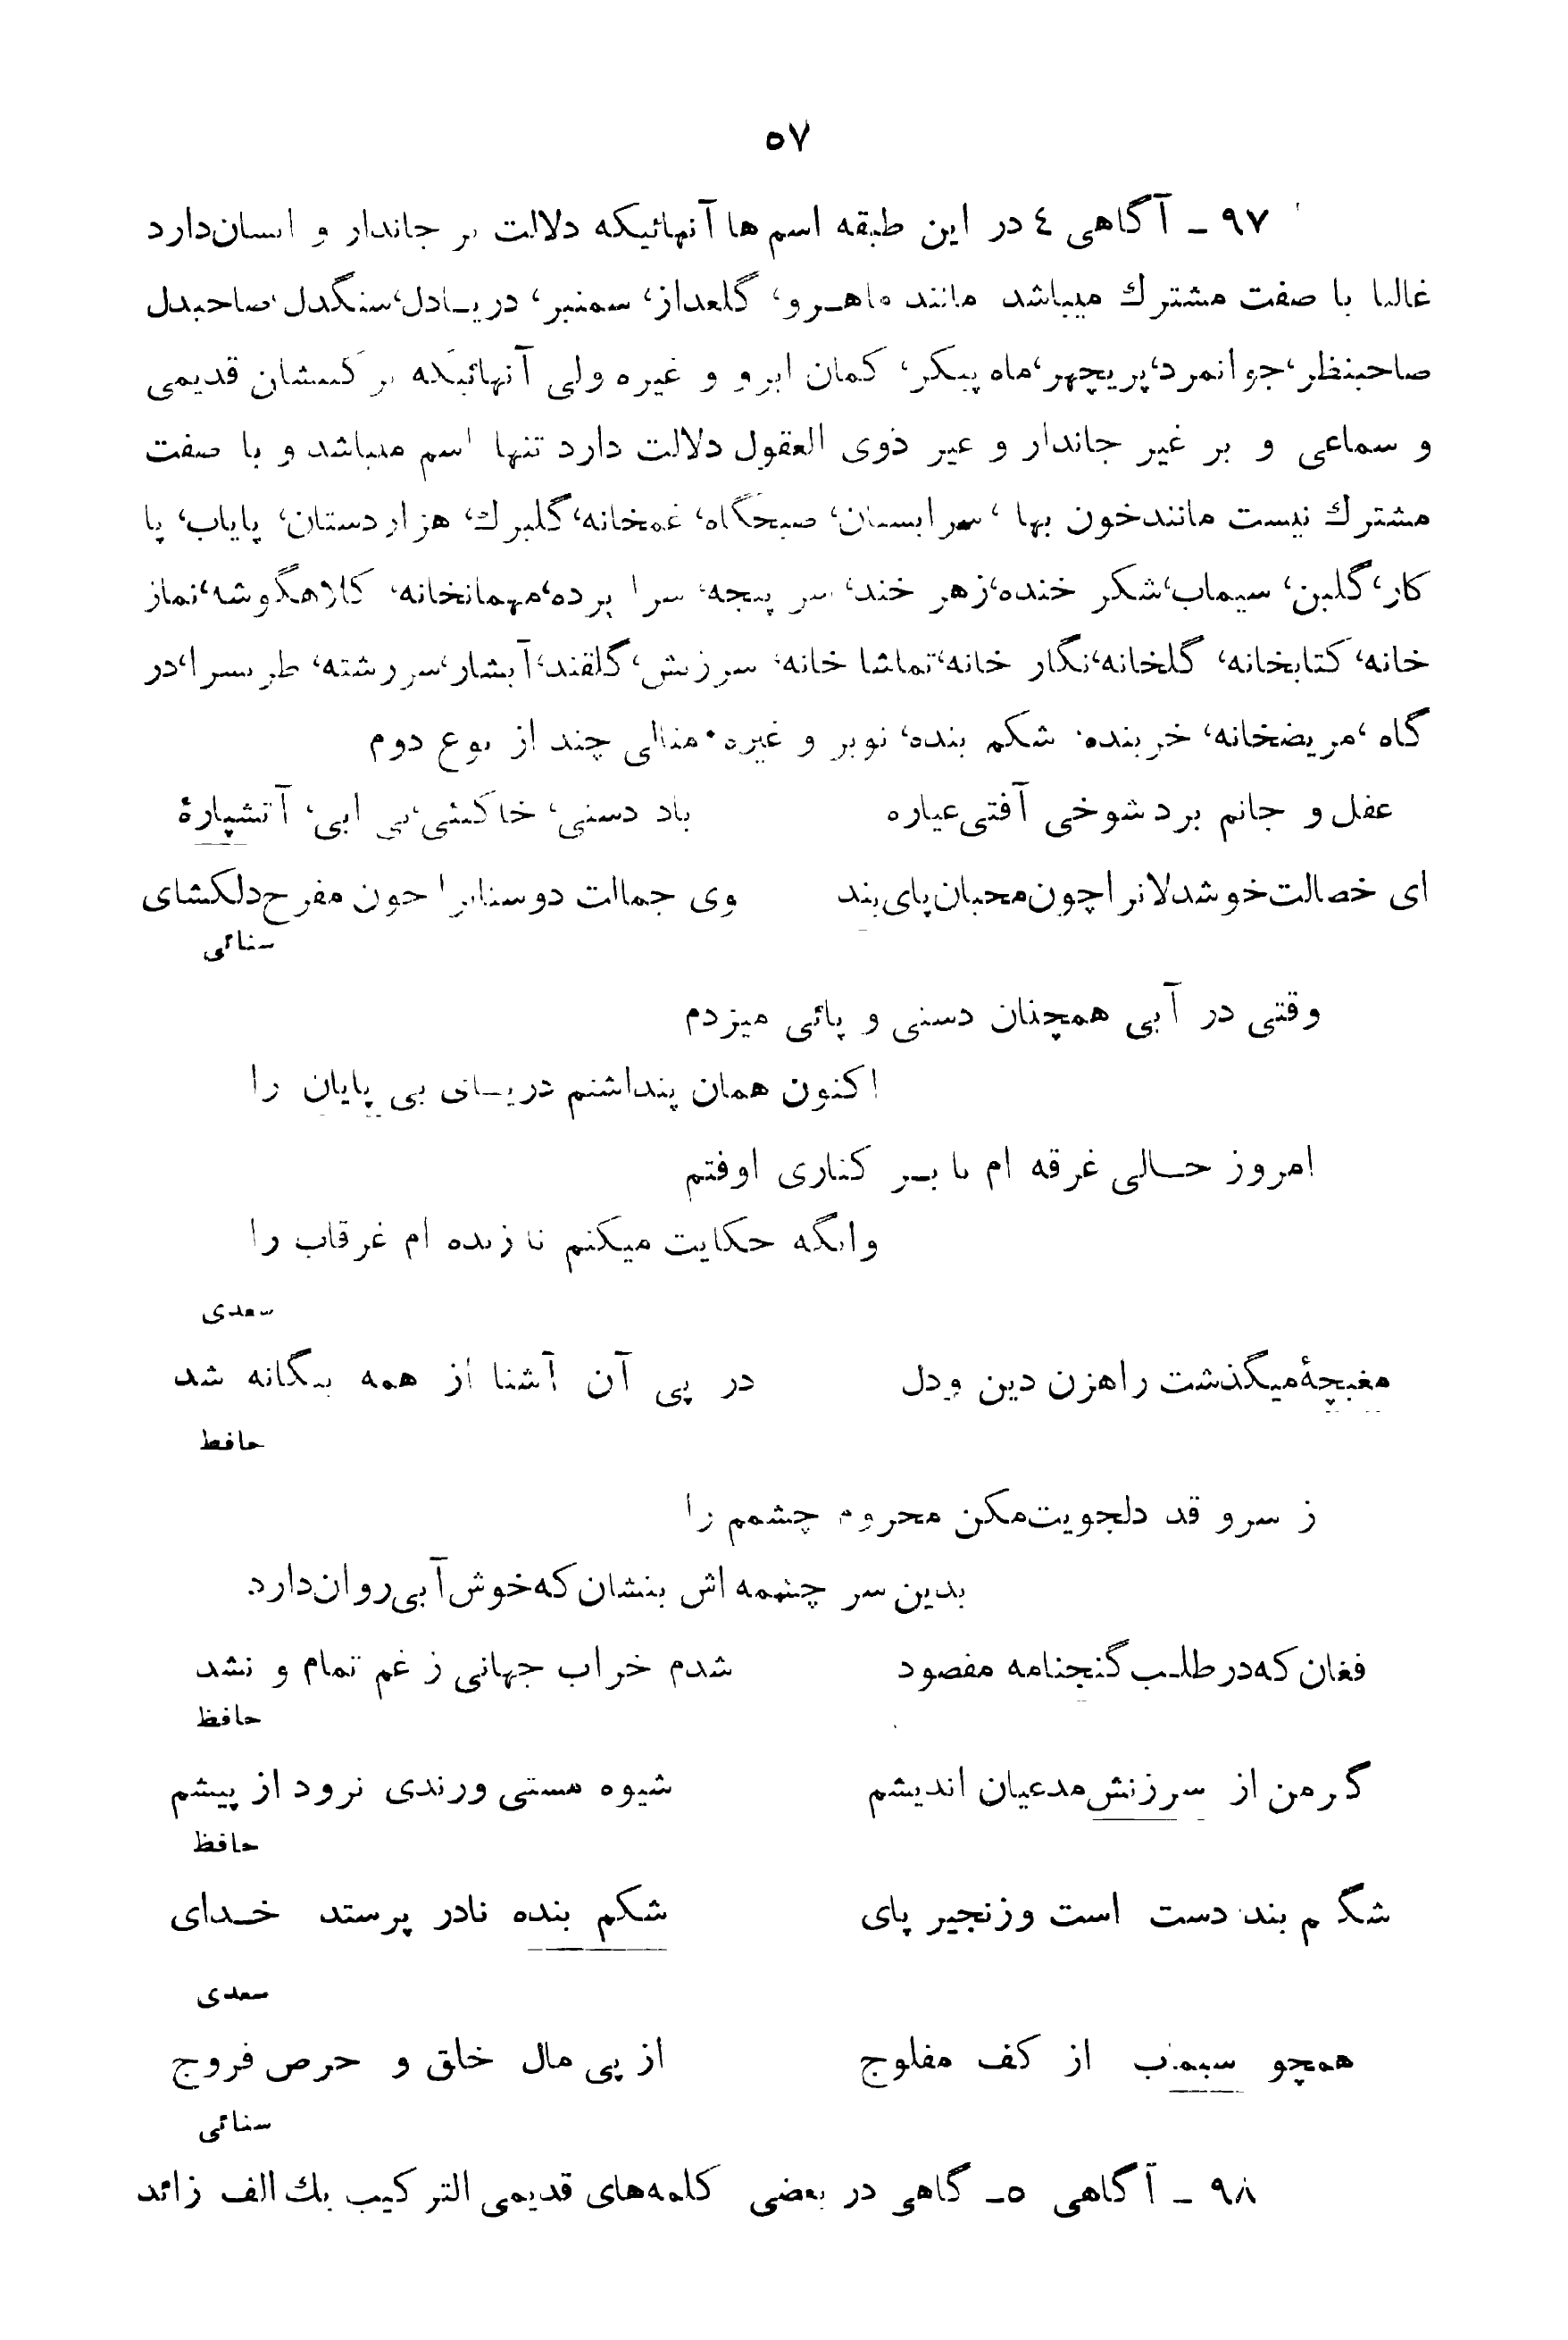 ۵۷
۹۷ ـ آگاهی ٤ در این طبقه اسم ها آنهائیکه دلالت بر جاندار و انسان‌دارد
غالبا با صفت مشترك میباشد مانند ماهرو، گلعداز، سمنبر، دریادل، سنگدل، صاحبدل
صاحبنظر، جوانمرد، پریچهر، ماه پیکر، کمان ابرو و غیره ولی آنهائیکه ترکیبشان قدیمی
و سماعی و بر غیر جاندار و غیر ذوی العقول دلالت دارد تنها اسم میباشد و با صفت
مشترك نیست مانندخون بها، سرابستان، صبحگاه، غمخانه، گلبرك، هزار دستان، پایاب، پا
کار، گلبن، سیماب، شکر خنده، زهر خند، سر پنجه، سرا پرده، مهمانخانه، کلاهگوشه، نماز
خانه، کتابخانه، گلخانه، نگار خانه، تماشا خانه، سرزنش، گلقند، آبشار، سررشته، طربسرا، در
گاه، مریضخانه، خربنده، شکم بنده، نوبر و غیره. مثالی چند از نوع دوم
عقل و جانم برد شوخی آفتی عیاره باد دستی، خاکئی، بی ابی، آتشپارهٔ
ای خصالت‌خوشدلانرا چون‌محبان‌پای‌بند وی جمالت دوستانرا چون مفرح‌دلکشای
سنائی
وقتی در آبی همچنان دستی و پائی میزدم
اکنون همان پنداشتم دریای بی پایان را
امروز حالی غرقه ام تا بر کناری اوفتم
وانگه حکایت میکنم تا زنده ام غرقاب را
سعدی
مغبچهٔ‌میگذشت راهزن دین ودل در پی آن آشنا از همه بیگانه شد
حافظ
ز سرو قد دلجویت‌مکن محروم چشمم را
بدین سر چشمه اش بنشان که‌خوش‌آبی‌روان‌دارد
فغان که‌در طلب گنجنامه مقصود شدم خراب جهانی ز غم تمام و نشد
حافظ
گرمن از سرزنش‌مدعیان اندیشم شیوه مستی ورندی نرود از پیشم
حافظ
شکم بند دست است وزنجیر پای شکم بنده نادر پرستد خدای
سعدی
همچو سیماب از کف مفلوج از پی مال خلق و حرص فروج
سنائی
۹۸ ـ آگاهی ۵ـ گاهی در بعضی کلمه‌های قدیمی الترکیب یك الف زائد